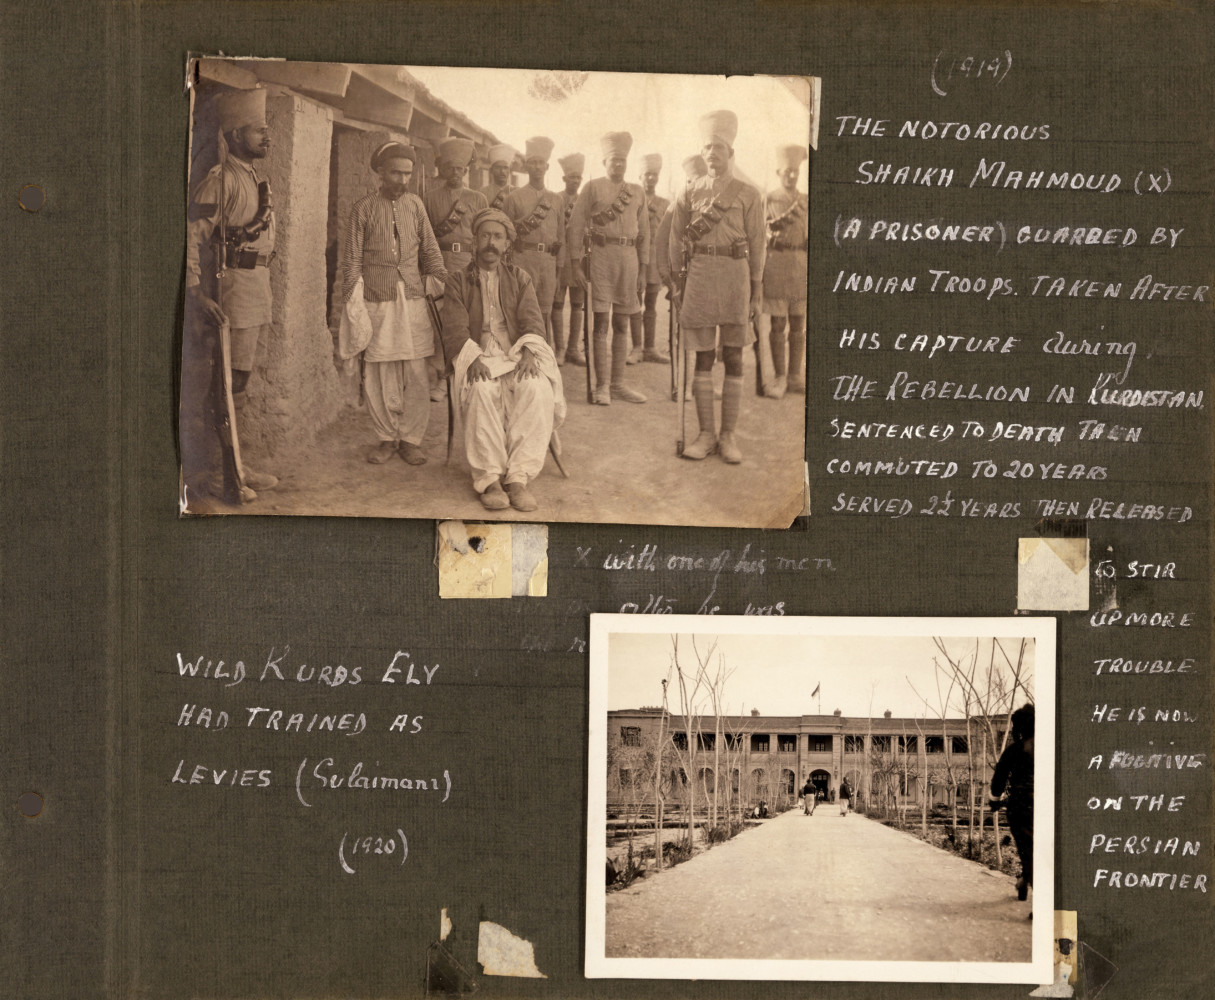 (1919)
THE NOTORIOUS
SHAIKH MAHMOUD (X)
(A PRISONER) GUARDED BY
INDIAN TROOPS. TAKEN AFTER
HIS CAPTURE during
THE REBELLION IN KURDISTAN.
SENTENCED TO DEATH THEN
COMMUTED TO 20 YEARS
SERVED 2½ YEARS THEN RELEASED
TO STIR
UP MORE
TROUBLE.
HE IS NOW
A FUGITIVE
ON THE
PERSIAN
FRONTIER
X with one of his men
after he was
WILD KURDS ELY
HAD TRAINED AS
LEVIES (Sulaimani)
(1920)